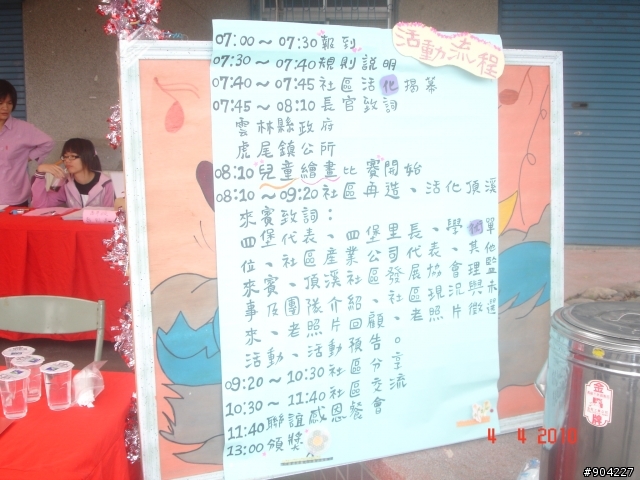 活動流程
07:00～07:30 報到
07:30～07:40 規則說明
07:40～07:45 社區活化揭幕
07:45～08:10 長官致詞
雲林縣政府
虎尾鎮公所
08:10 兒童繪畫比賽開始
08:10～09:20 社區再造、活化頂溪
來賓致詞：
四堡代表、四堡里長、學術單
位、社區產業公司代表、其他
來賓、頂溪社區發展協會理監
事及團隊介紹、社區現況與未
來、老照片回顧、老照片徵選
活動、活動預告。
09:20～10:30 社區分享
10:30～11:40 社區交流
11:40 聯誼感恩餐會
13:00 頒獎
金
牌
4 4 2010
#904227